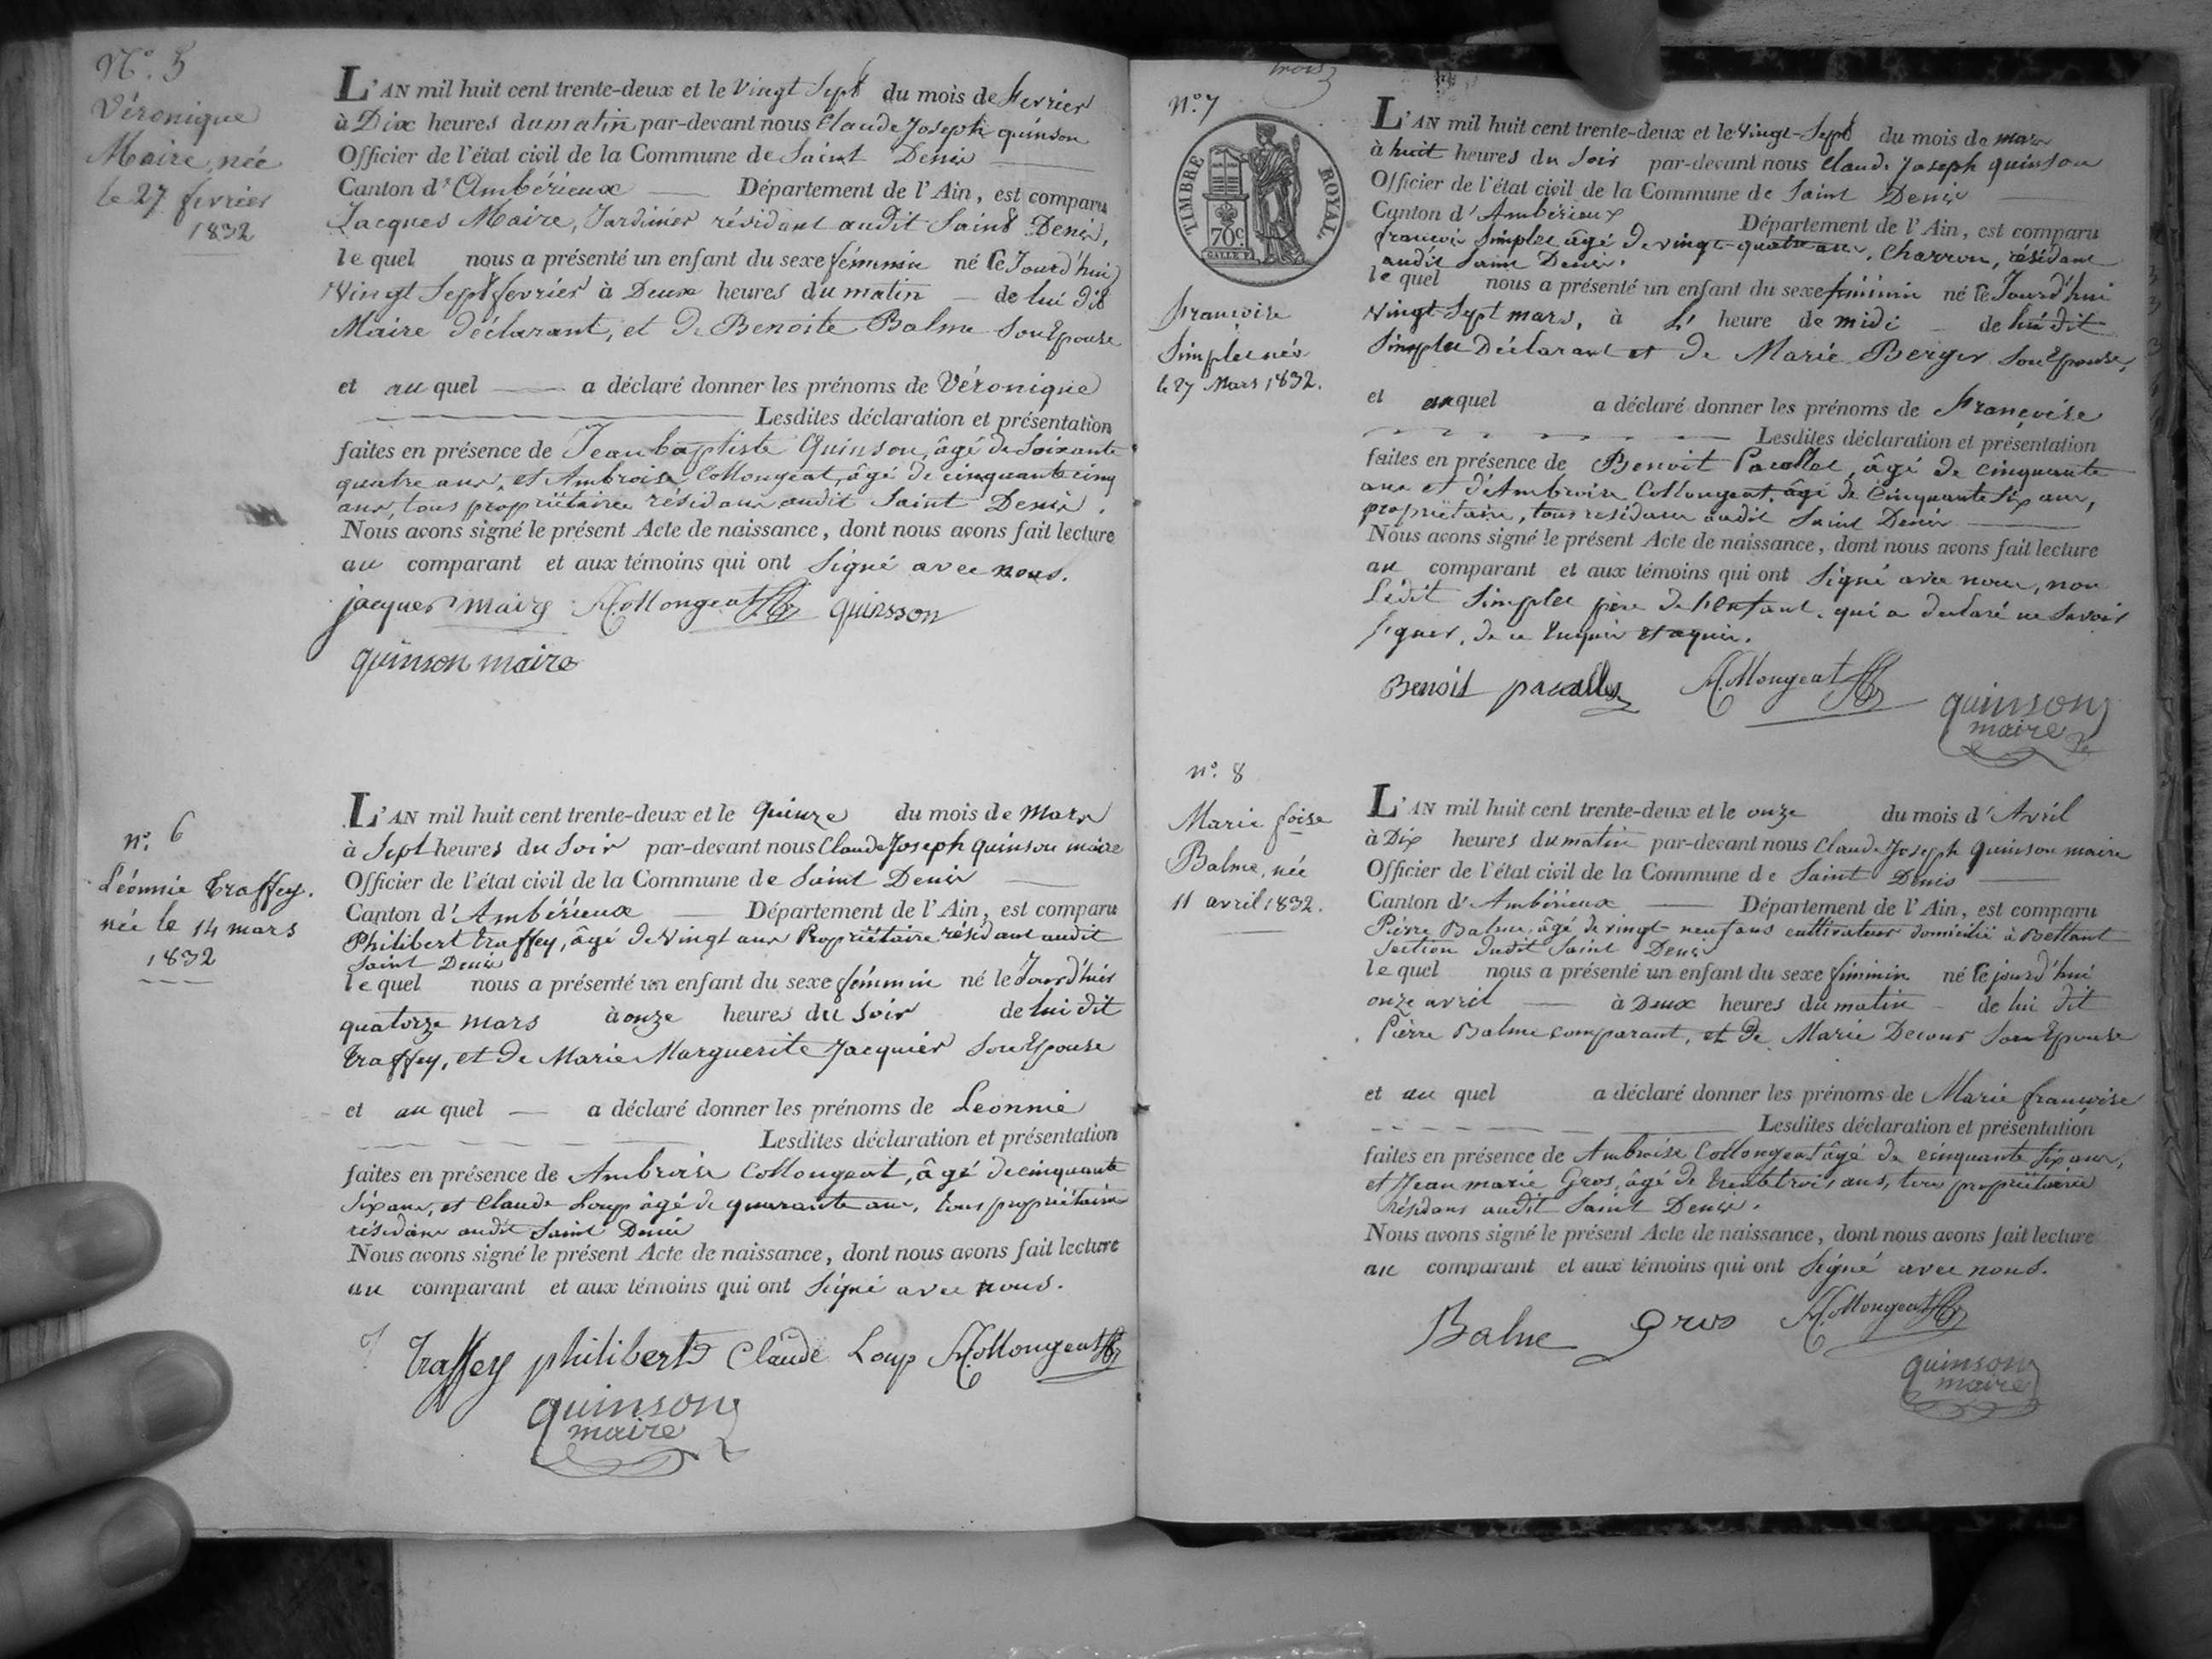 N.° 5
Véronique
Maire, née
le 27 fevrier
1832
L'AN mil huit cent trente-deux et le Vingt Sept du mois de Fevrier
à Dix heures du matin par-devant nous Claude Joseph quinson
Officier de l'état civil de la Commune de Saint Denis
Canton d'Ambérieux Département de l'Ain, est comparu
Jacques Maire, Jardinier résidant audit Saint Denis,
le quel nous a présenté un enfant du sexe féminin né le Jourd'hui
Vingt Sept fevrier à Deux heures du matin de lui dit
Maire déclarant, et de Benoite Balme Son Epouse
et au quel a déclaré donner les prénoms de Véronique
Lesdites déclaration et présentation
faites en présence de Jean baptiste Quinson, âgé de Soixante
quatre ans, et Ambroise Collongeat, âgé de cinquante cinq
ans, tous propriétaires résidans audit Saint Denis.
Nous avons signé le présent Acte de naissance, dont nous avons fait lecture
au comparant et aux témoins qui ont Signé avec nous.
jacques maire A. Collongeat quinsson
quinson maire
n.° 6
Léonnie Traffey.
née le 14 mars
1832
L'AN mil huit cent trente-deux et le quinze du mois de Mars
à Sept heures du Soir par-devant nous Claude Joseph quinson maire
Officier de l'état civil de la Commune de Saint Denis
Canton d'Ambérieux Département de l'Ain, est comparu
Philibert traffey, âgé de Vingt ans Propriétaire résidant audit
Saint Denis
le quel nous a présenté un enfant du sexe féminin né le Jourd'hier
quatorze mars à onze heures du Soir de lui dit
Traffey, et de Marie Marguerite Jacquier Son Epouse
et au quel a déclaré donner les prénoms de Leonnie
Lesdites déclaration et présentation
faites en présence de Ambroise Collongeat, âgé de cinquante
Six ans, et Claude Loup âgé de quarante ans, tous propriétaires
résidans audit Saint Denis
Nous avons signé le présent Acte de naissance, dont nous avons fait lecture
au comparant et aux témoins qui ont Signé avec nous.
Traffey philibert Claude Loup A. Collongeat
quinson
maire
trois
N.° 7
TIMBRE ROYAL
70c.
Francoise
Simplee née
le 27 Mars 1832.
L'AN mil huit cent trente-deux et le Vingt-Sept du mois de mars
à huit heures du Soir par-devant nous Claude Joseph quinson
Officier de l'état civil de la Commune de Saint Denis
Canton d'Ambérieux Département de l'Ain, est comparu
françois Simplee âgé de vingt-quatre ans, Charron, résidant
audit Saint Denis.
le quel nous a présenté un enfant du sexe féminin né le Jourd'hui
Vingt Sept mars, à L' heure de midi de lui dit
Simplee Déclarant et de Marie Berger Son Epouse,
et auquel a déclaré donner les prénoms de Françoise
Lesdites déclaration et présentation
faites en présence de Benoit Pacallet, âgé de cinquante
ans et d'Ambroise Collongeat, âgé de Cinquante Six ans,
propriétaire, tous residans audit Saint Denis
Nous avons signé le présent Acte de naissance, dont nous avons fait lecture
au comparant et aux témoins qui ont Signé avec nous, non
Ledit Simplee père de l'enfant, qui a declaré ne Savoir
Signer, de ce Enquis et aquis.
Benoit pacallet A. Collongeat
quinson
maire
n.° 8
Marie foise
Balme, née
11 avril 1832.
L'AN mil huit cent trente-deux et le onze du mois d'Avril
à Dix heures du matin par-devant nous Claude Joseph quinson maire
Officier de l'état civil de la Commune de Saint Denis
Canton d'Ambérieux Département de l'Ain, est comparu
Pierre Balme, âgé de vingt-neuf ans cultivateur domicilié à Bettant
Section dudit Saint Denis
le quel nous a présenté un enfant du sexe féminin né le jourd'hui
onze avril à Deux heures du matin de lui dit
Pierre Balme comparant, et de Marie Decour Son Epouse
et au quel a déclaré donner les prénoms de Marie françoise
Lesdites déclaration et présentation
faites en présence de Ambroise Collongeat âgé de cinquante Six ans,
et Jean marie Gros, âgé de trente trois ans, tous propriétaires
résidans audit Saint Denis.
Nous avons signé le présent Acte de naissance, dont nous avons fait lecture
au comparant et aux témoins qui ont Signé avec nous.
Balme Gros A. Collongeat
quinson
maire